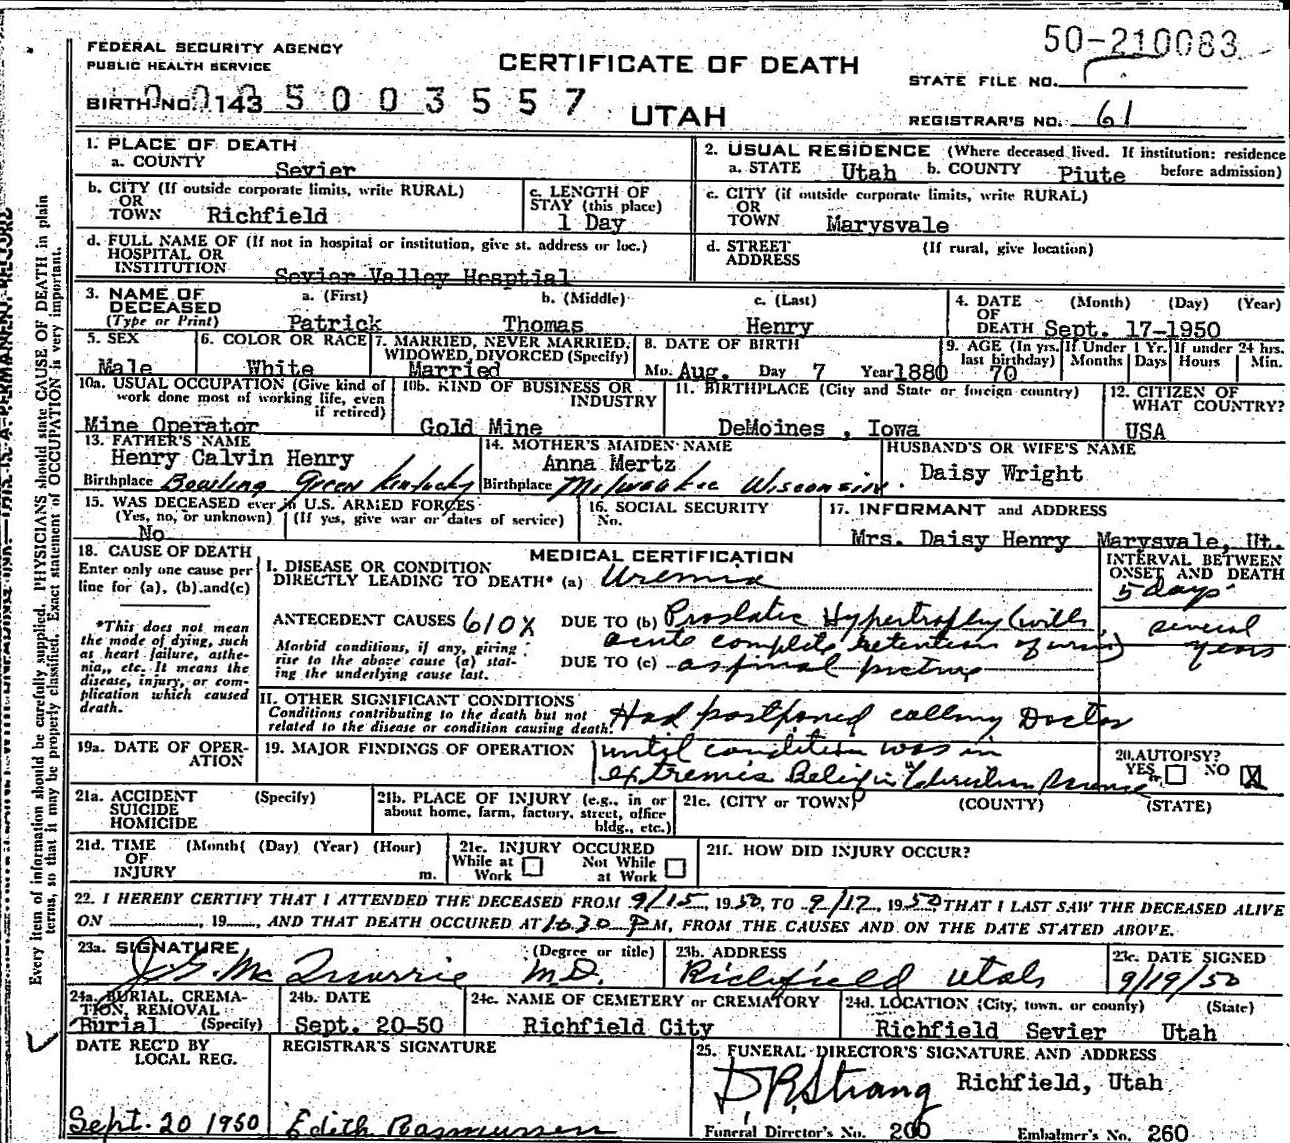 50-210083
FEDERAL SECURITY AGENCY
PUBLIC HEALTH SERVICE
CERTIFICATE OF DEATH
STATE FILE NO.
BIRTH NO. 143 5003557
UTAH
REGISTRAR'S NO. 61
1. PLACE OF DEATH
a. COUNTY Sevier
2. USUAL RESIDENCE (Where deceased lived. If institution: residence before admission)
a. STATE Utah b. COUNTY Piute
b. CITY (If outside corporate limits, write RURAL)
OR
TOWN Richfield
c. LENGTH OF
STAY (this place)
1 Day
c. CITY (if outside corporate limits, write RURAL)
OR
TOWN Marysvale
d. FULL NAME OF (If not in hospital or institution, give st. address or loc.)
HOSPITAL OR
INSTITUTION Sevier Valley Hosptial
d. STREET (If rural, give location)
ADDRESS
3. NAME OF
DECEASED
(Type or Print)
a. (First) b. (Middle) c. (Last)
Patrick Thomas Henry
4. DATE (Month) (Day) (Year)
OF
DEATH Sept. 17-1950
5. SEX
Male
6. COLOR OR RACE
White
7. MARRIED, NEVER MARRIED,
WIDOWED, DIVORCED (Specify)
Married
8. DATE OF BIRTH
Mo. Aug. Day 7 Year 1880
9. AGE (In yrs.
last birthday)
70
If Under 1 Yr.
Months Days
If under 24 hrs.
Hours Min.
10a. USUAL OCCUPATION (Give kind of
work done most of working life, even
if retired)
Mine Operator
10b. KIND OF BUSINESS OR
INDUSTRY
Gold Mine
11. BIRTHPLACE (City and State or foreign country)
DeMoines , Iowa
12. CITIZEN OF
WHAT COUNTRY?
USA
13. FATHER'S NAME
Henry Calvin Henry
Birthplace Bowling Green Kentucky
14. MOTHER'S MAIDEN NAME
Anna Mertz
Birthplace Milwaukee Wisconsin.
HUSBAND'S OR WIFE'S NAME
Daisy Wright
15. WAS DECEASED ever in U.S. ARMED FORCES
(Yes, no, or unknown) (If yes, give war or dates of service)
No
16. SOCIAL SECURITY
No.
17. INFORMANT and ADDRESS
Mrs. Daisy Henry Marysvale, Ut.
18. CAUSE OF DEATH
Enter only one cause per
line for (a), (b).and(c)
*This does not mean
the mode of dying, such
as heart failure, asthe-
nia,, etc. It means the
disease, injury, or com-
plication which caused
death.
MEDICAL CERTIFICATION
I. DISEASE OR CONDITION
DIRECTLY LEADING TO DEATH* (a) Uremia
INTERVAL BETWEEN
ONSET AND DEATH
5 days
ANTECEDENT CAUSES 610X DUE TO (b) Prostatic Hypertrophy (with
acute complete retention of urine)
several
years
Morbid conditions, if any, giving
rise to the above cause (a) stat-
ing the underlying cause last.
DUE TO (c)
II. OTHER SIGNIFICANT CONDITIONS
Conditions contributing to the death but not
related to the disease or condition causing death.
Had postponed calling Doctor
until condition was in
extremis
19a. DATE OF OPER-
ATION
19. MAJOR FINDINGS OF OPERATION
20. AUTOPSY?
YES NO X
21a. ACCIDENT (Specify)
SUICIDE
HOMICIDE
21b. PLACE OF INJURY (e.g., in or
about home, farm, factory, street, office
bldg., etc.)
21c. (CITY or TOWN) (COUNTY) (STATE)
21d. TIME (Month( (Day) (Year) (Hour)
OF
INJURY m.
21e. INJURY OCCURED
While at Work Not While at Work
21f. HOW DID INJURY OCCUR?
22. I HEREBY CERTIFY THAT I ATTENDED THE DECEASED FROM 9/15, 1950, TO 9/17, 1950, THAT I LAST SAW THE DECEASED ALIVE
ON , 19 , AND THAT DEATH OCCURED AT 10:30 P.M, FROM THE CAUSES AND ON THE DATE STATED ABOVE.
23a. SIGNATURE (Degree or title)
J.G. McQuarrie M.D.
23b. ADDRESS
Richfield Utah
23c. DATE SIGNED
9/19/50
24a. BURIAL, CREMA-
TION, REMOVAL
Burial (Specify)
24b. DATE
Sept. 20-50
24c. NAME OF CEMETERY or CREMATORY
Richfield City
24d. LOCATION (City, town, or county) (State)
Richfield Sevier Utah
DATE REC'D BY
LOCAL REG.
Sept. 20 1950
REGISTRAR'S SIGNATURE
Edith Rasmussen
25. FUNERAL DIRECTOR'S SIGNATURE AND ADDRESS
D R Strang Richfield, Utah
Funeral Director's No. 200 Embalmer's No. 260
Every item of information should be carefully supplied. PHYSICIANS should state CAUSE OF DEATH in plain
terms, so that it may be properly classified. Exact statement of OCCUPATION is very important.